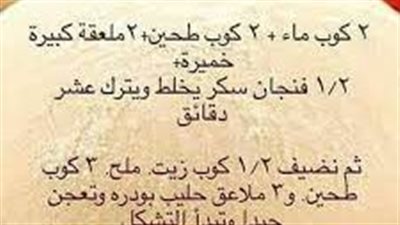 ٢ كوب ماء + ٢ كوب طحين+٢ملعقة كبيرة
خميرة+
١/٢ فنجان سكر يخلط ويترك عشر
دقائق
ثم نضيف ١/٢ كوب زيت. ملح. ٣ كوب
طحين. و٣ ملاعق حليب بودره وتعجن
جيدا وتبدأ التشكل